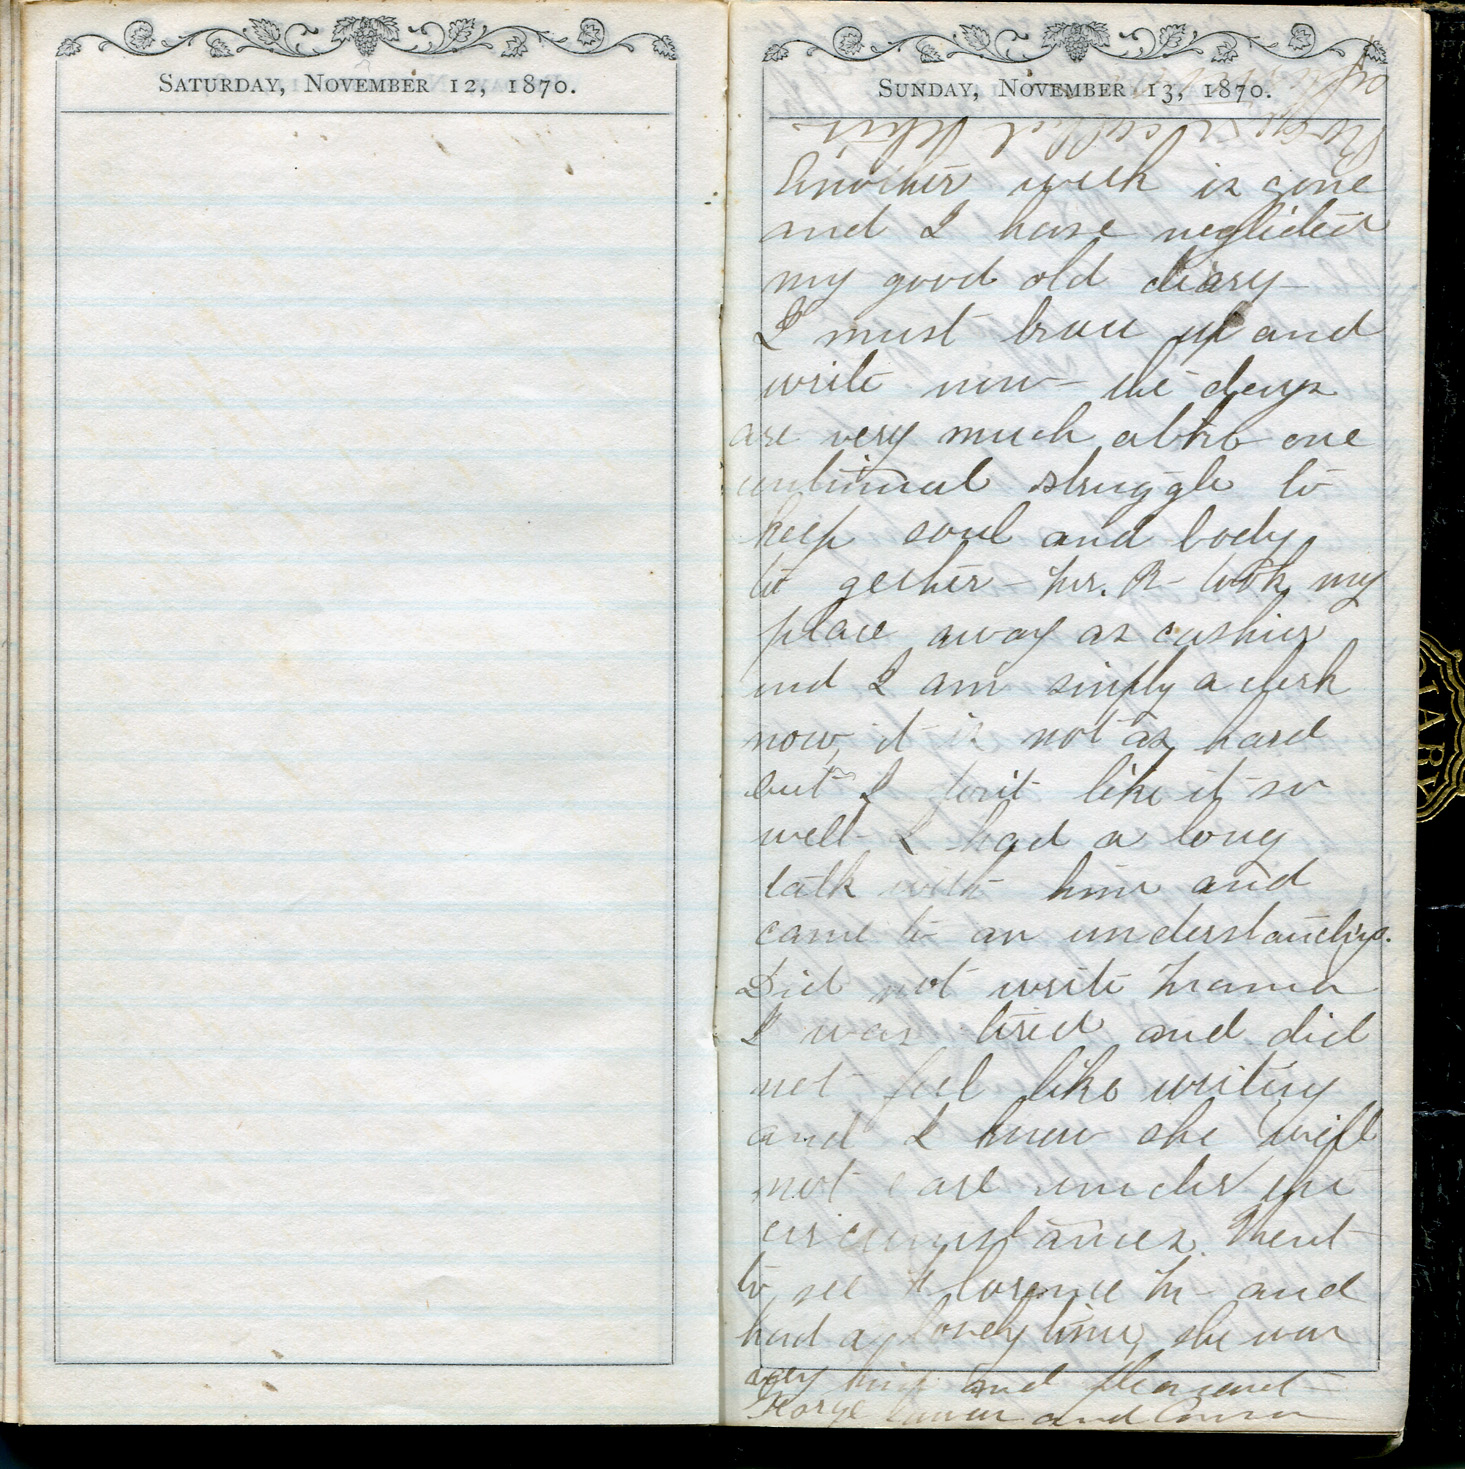 SATURDAY, NOVEMBER 12, 1870.
SUNDAY, NOVEMBER 13, 1870.
Another week is gone
and I have neglected
my good old diary—
I must brace up and
write now— the days
are very much alike one
continual struggle to
keep soul and body
to gether— Mr. R— took my
place away as cashier
and I am simply a clerk
now, it is not as hard
but I don't like it so
well— I had a long
talk with him and
came to an understanding.
Did not write Mama
I was tired and did
not feel like writing
and I know she will
not care under the
circumstances. Went
to see Florence M— and
had a lovely time, she was
very kind and pleasant—
George and
called
DIARY